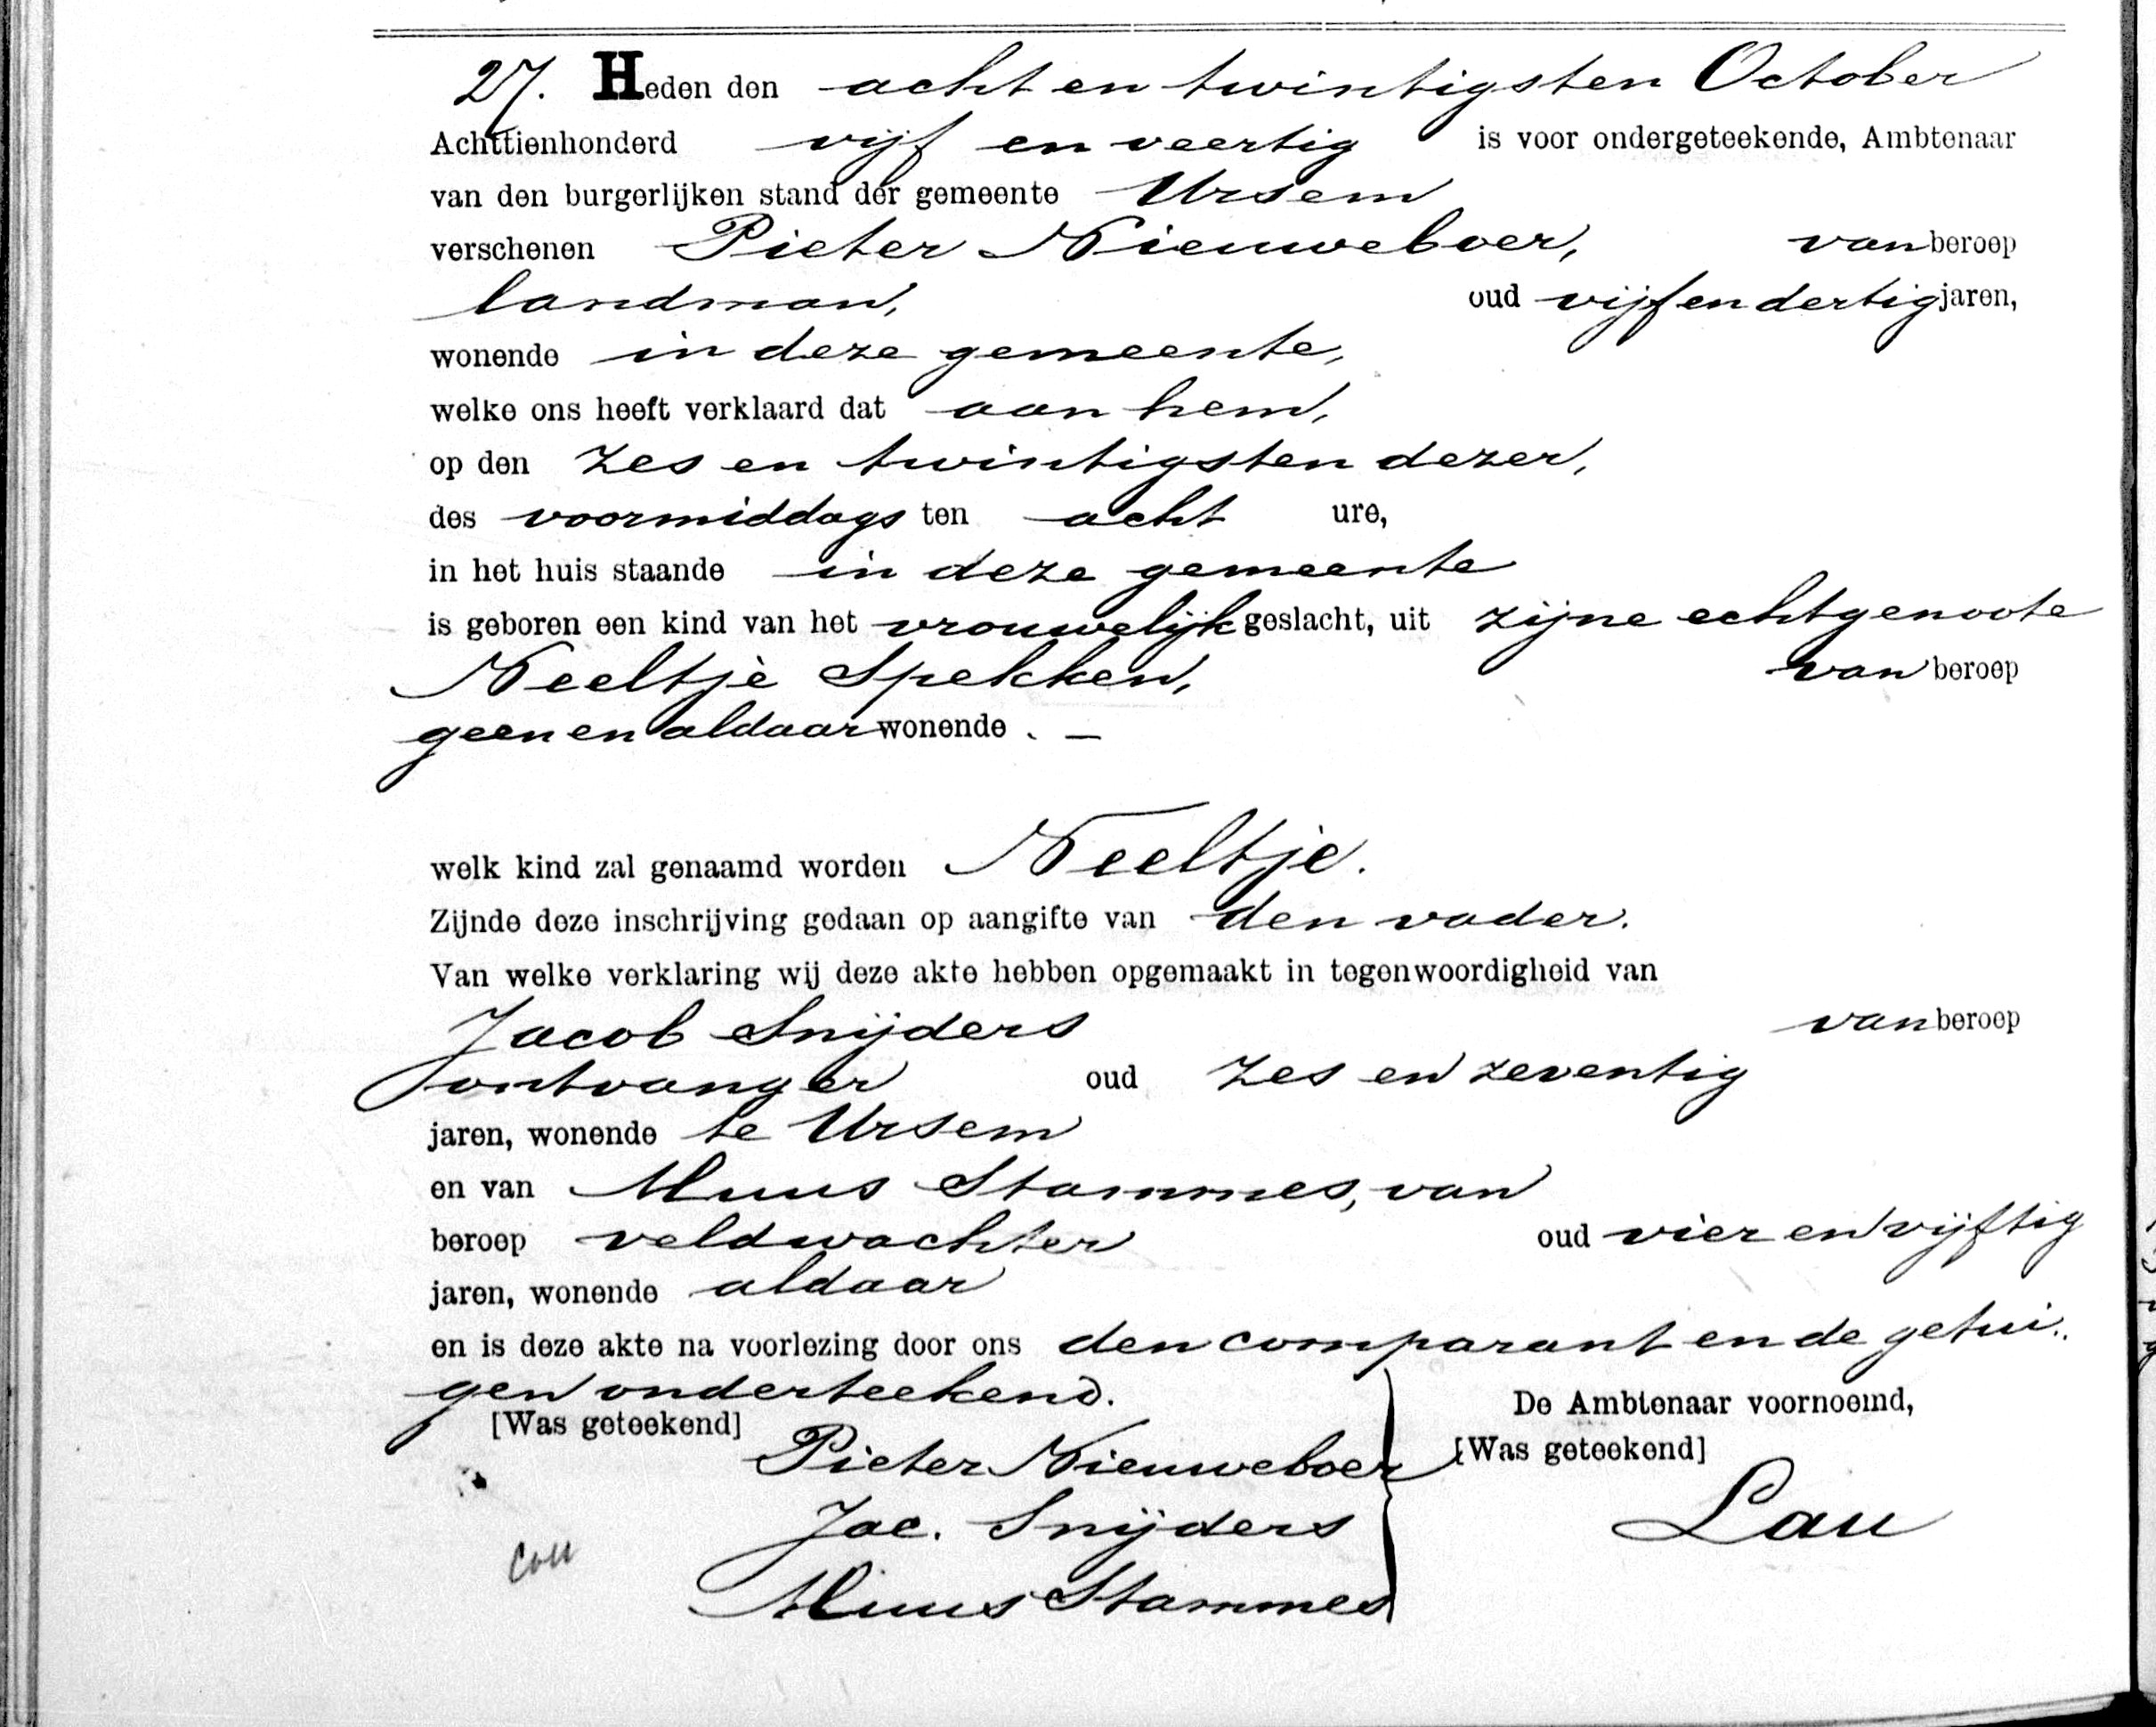 27. Heden den acht en twintigsten October
Achttienhonderd vijf en veertig is voor ondergeteekende, Ambtenaar
van den burgerlijken stand der gemeente Ursem
verschenen Pieter Nieuweboer, van beroep
landman, oud vijf en dertig jaren,
wonende in deze gemeente,
welke ons heeft verklaard dat aan hem,
op den zes en twintigsten dezer,
des voormiddags ten acht ure,
in het huis staande in deze gemeente
is geboren een kind van het vrouwelijk geslacht, uit zijne echtgenoote
Neeltje Spekken, van beroep
geen en aldaar wonende. —
welk kind zal genaamd worden Neeltje.
Zijnde deze inschrijving gedaan op aangifte van den vader.
Van welke verklaring wij deze akte hebben opgemaakt in tegenwoordigheid van
Jacob Snijders van beroep
ontvanger oud zes en zeventig
jaren, wonende te Ursem
en van Muus Stammes, van
beroep veldwachter oud vier en vijftig
jaren, wonende aldaar
en is deze akte na voorlezing door ons den comparant en de getui..
gen onderteekend.
[Was geteekend] De Ambtenaar voornoemd,
Pieter Nieuweboer [Was geteekend]
Jac. Snijders Lau
Muus Stammes